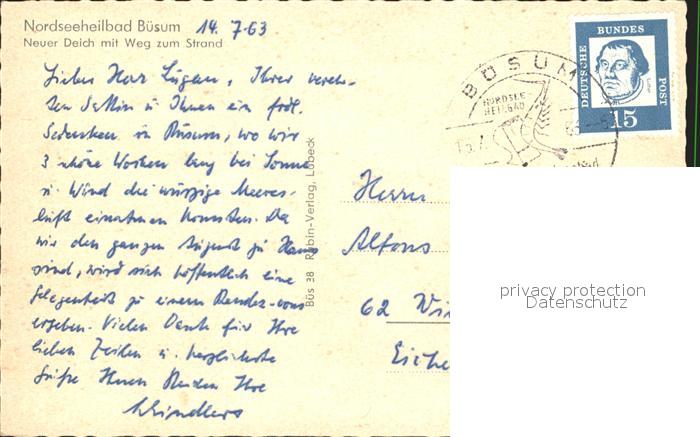 Nordseeheilbad Büsum 14. 7. 63
Neuer Deich mit Weg zum Strand
Lieber Herr Lügen, Ihrer vereh-
ten Gattin u Ihnen ein frdl.
Gedenken in Büsum, wo wir
3 schöne Wochen lang bei Sonne
u. Wind die würzige Meeres-
luft einatmen konnten. Da
wir den ganzen August zu Haus
sind, wird sich hoffentlich eine
Gelegenheit zu einem Rendez-vous
ergeben. Vielen Dank für Ihre
lieben Zeilen u. herzlichste
Grüße Ihnen Beiden Ihre
Schindlers
Büs 38 Rubin-Verlag, Lübeck
BÜSUM
NORDSEE-
HEILBAD
DEUTSCHE BUNDES POST
Luther
15
Herrn
Alfons
62 Wi
Eiche
privacy protection
Datenschutz